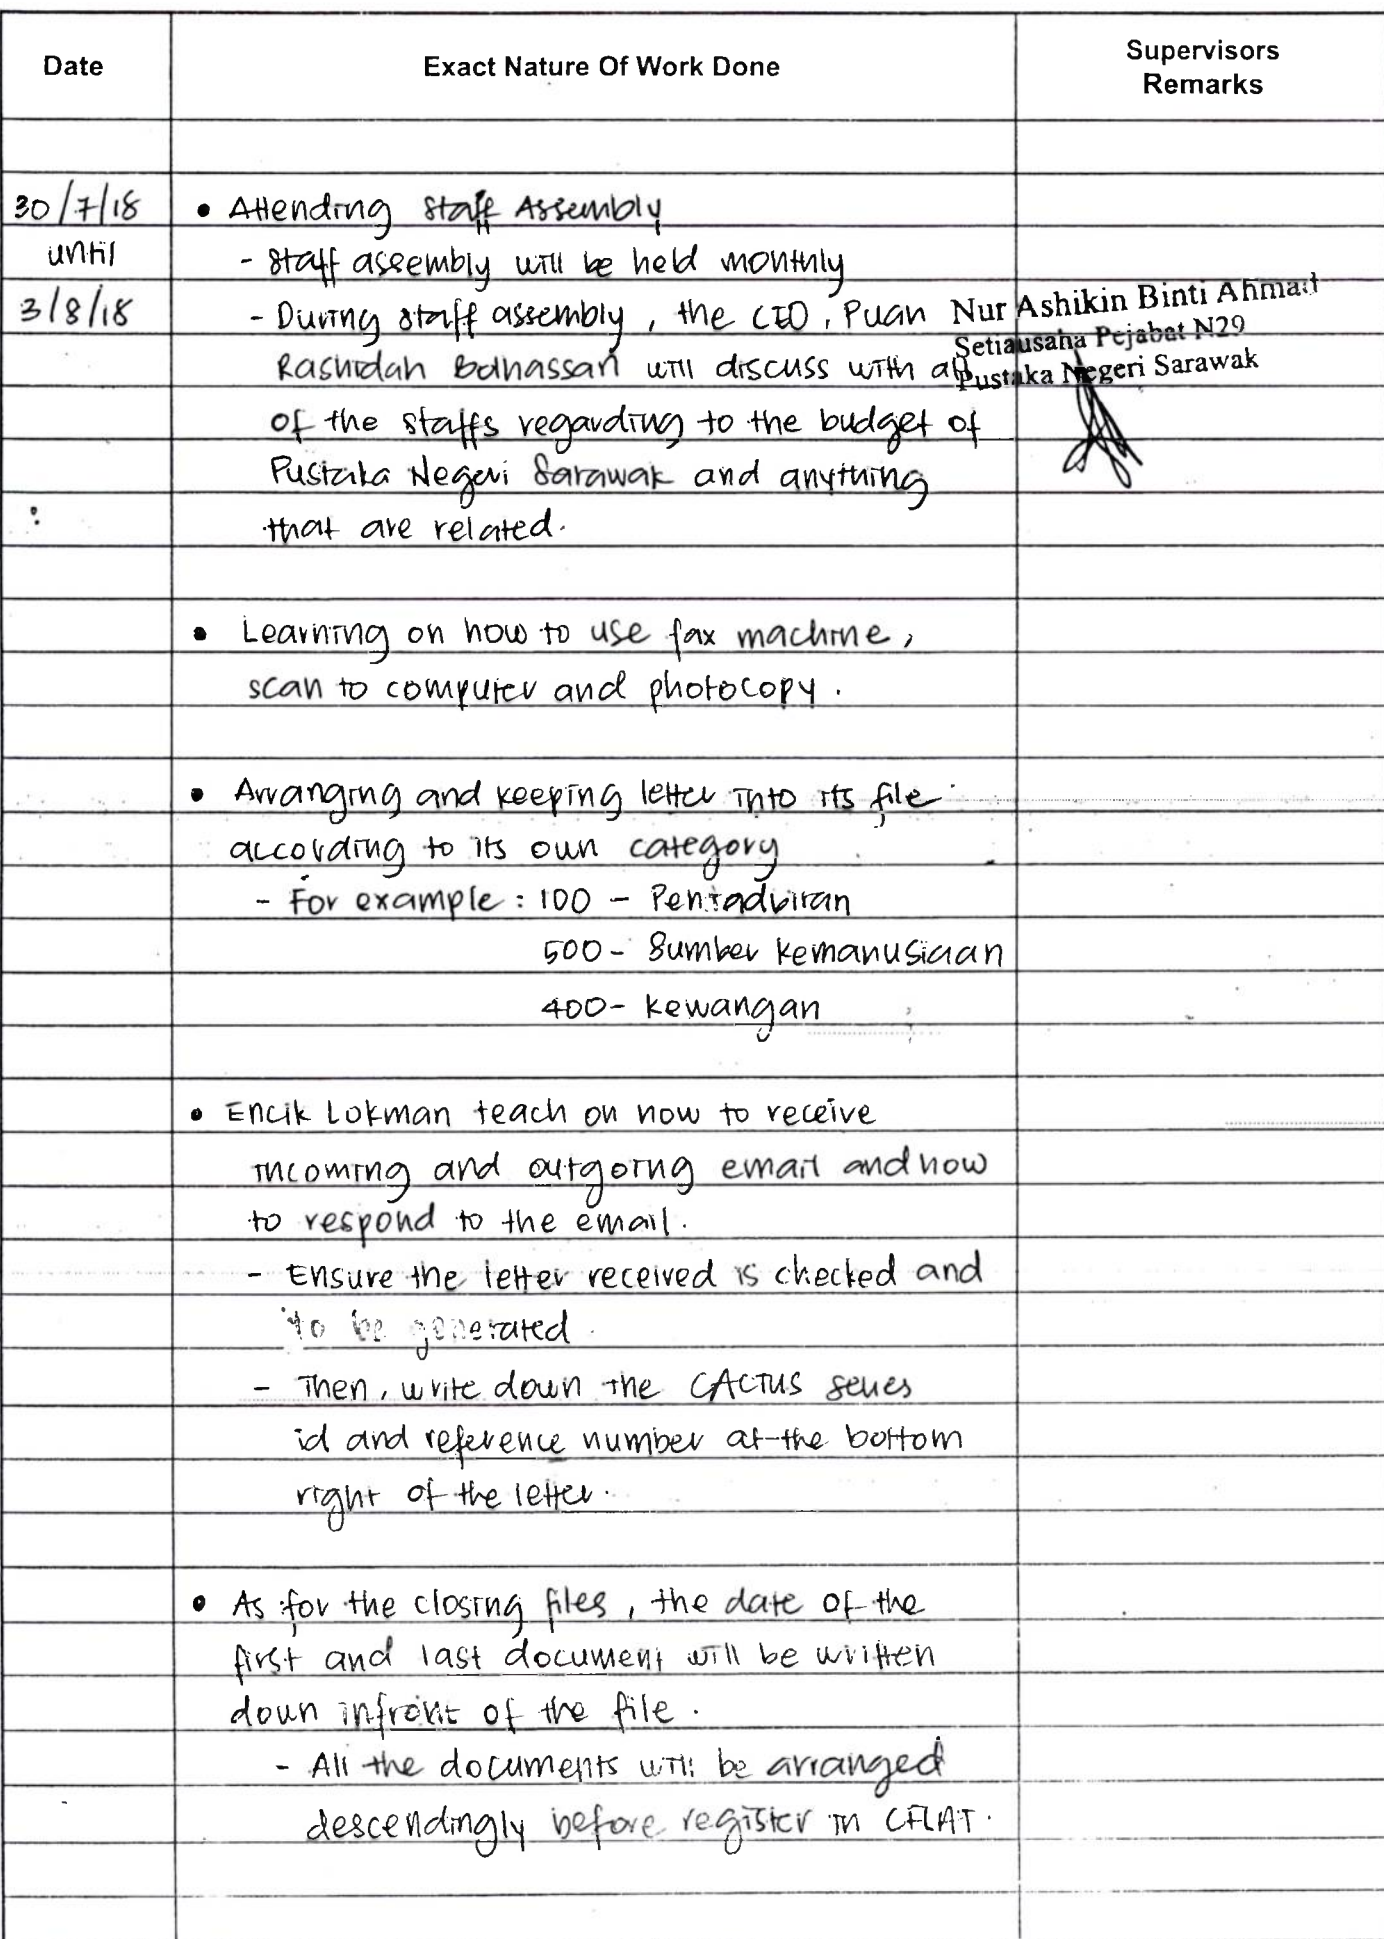 Date
Exact Nature Of Work Done
Supervisors
Remarks
30/7/18
until
3/8/18
• Attending Staff Assembly
- Staff assembly will be held monthly
- During staff assembly, the CEO, Puan
Rashidah Bolhassan will discuss with all
of the staffs regarding to the budget of
Pustaka Negeri Sarawak and anything
that are related.
Nur Ashikin Binti Ahmad
Setiausaha Pejabat N29
Pustaka Negeri Sarawak
• Learning on how to use fax machine,
scan to computer and photocopy.
• Arranging and keeping letter into its file
according to its own category
- For example: 100 - Pentadbiran
500 - Sumber Kemanusiaan
400 - Kewangan
• Encik Lokman teach on how to receive
incoming and outgoing email and how
to respond to the email.
- Ensure the letter received is checked and
to be generated.
- Then, write down the CACTUS series
id and reference number at the bottom
right of the letter.
• As for the closing files, the date of the
first and last document will be written
down infront of the file.
- All the documents will be arranged
descendingly before register in